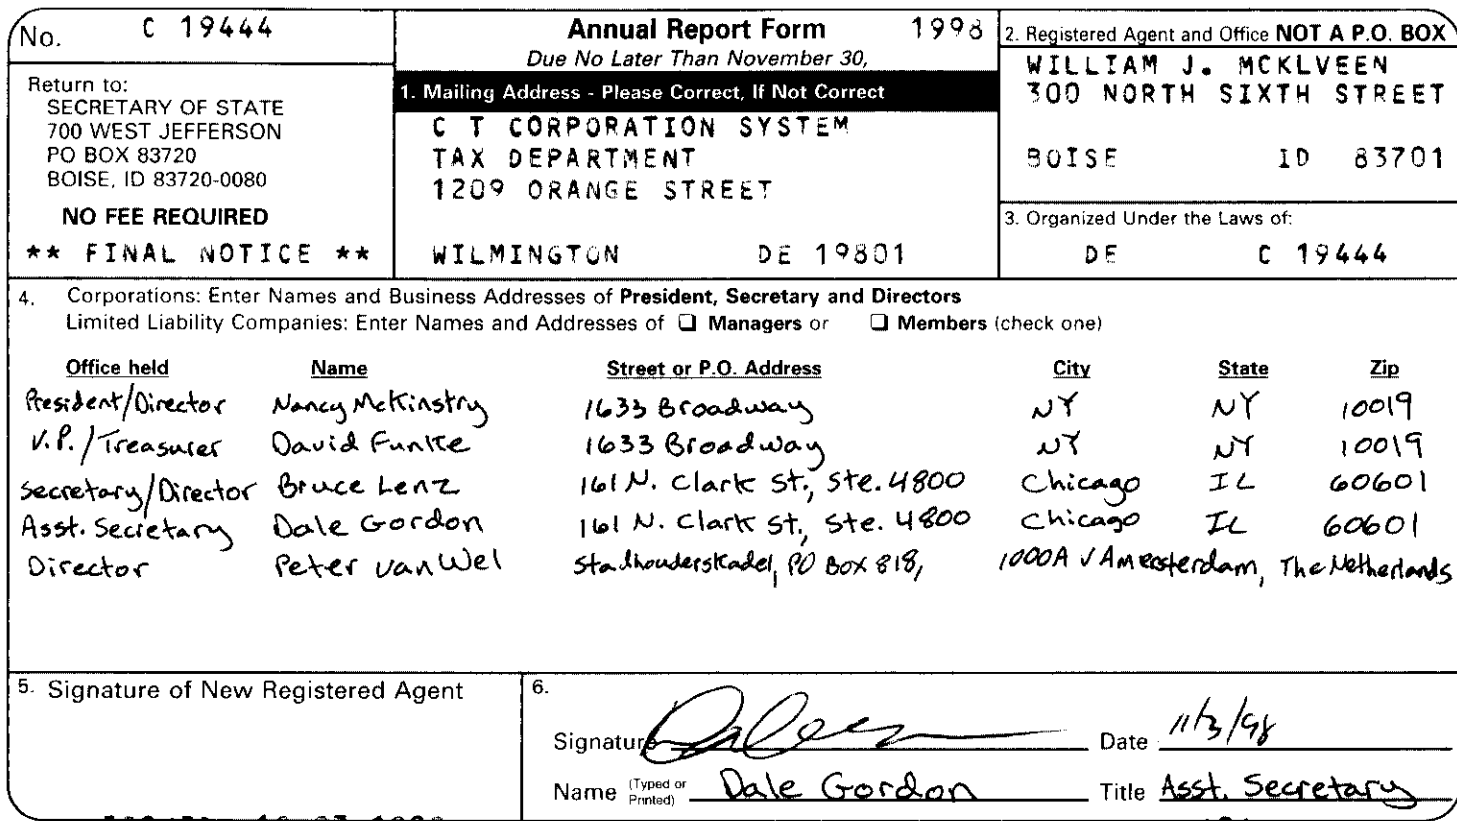 No. C 19444
Return to:
SECRETARY OF STATE
700 WEST JEFFERSON
PO BOX 83720
BOISE, ID 83720-0080
NO FEE REQUIRED
** FINAL NOTICE **
Annual Report Form 1998
Due No Later Than November 30,
1. Mailing Address - Please Correct, If Not Correct
C T CORPORATION SYSTEM
TAX DEPARTMENT
1209 ORANGE STREET
WILMINGTON DE 19801
2. Registered Agent and Office NOT A P.O. BOX
WILLIAM J. MCKLVEEN
300 NORTH SIXTH STREET
BOISE ID 83701
3. Organized Under the Laws of:
DE C 19444
4. Corporations: Enter Names and Business Addresses of President, Secretary and Directors
Limited Liability Companies: Enter Names and Addresses of ❑ Managers or ❑ Members (check one)
Office held Name Street or P.O. Address City State Zip
President/Director Nancy McKinstry 1633 Broadway NY NY 10019
V.P./Treasurer David Funke 1633 Broadway NY NY 10019
Secretary/Director Bruce Lenz 161 N. Clark St., Ste. 4800 Chicago IL 60601
Asst. Secretary Dale Gordon 161 N. Clark St., Ste. 4800 Chicago IL 60601
Director Peter van Wel Stadhouderskadel, PO Box 818, 1000A V Amersterdam, The Netherlands
5. Signature of New Registered Agent
6.
Signature Date 11/3/98
Name (Typed or Printed) Dale Gordon Title Asst. Secretary